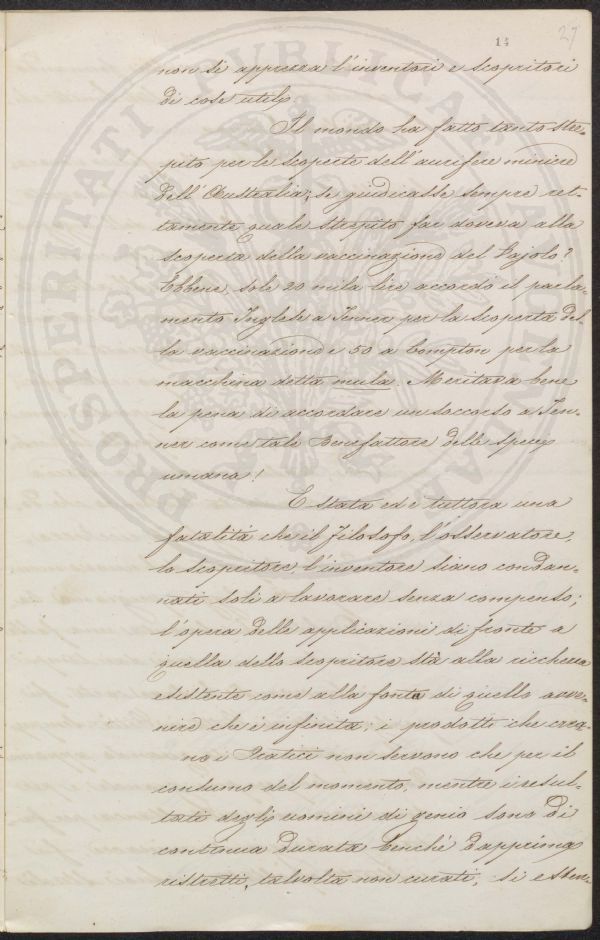 14
27
non si apprezza l'inventori e scopritori
di cose utili
Il mondo ha fatto tanto stre-
pito per le scoperte dell'aurifere miniere
dell'Australia; se giudicasse sempre ret-
tamente quale strepito far doveva alla
scoperta della vaccinazione del Vajolo?
Ebbene, sole 20 mila lire accordò il parla-
mento Inglese a Jenner per la scoperta del-
la vaccinazione e 50 a Compton per la
macchina detta mula. Meritava bene
la pena di accordare un soccorso a Jen-
ner come tale Benefattore delle specie
umana!
È stata ed è tuttora una
fatalità che il Filosofo, l'osservatore,
lo scopritore l'inventore siano condan-
nati soli a lavorare senza compenso;
l'opera delle applicazioni di fronte a
quella dello scopritore stà alla ricchezza
esistente come alla fonte di quello avve-
nire che è infinita; i prodotti che crea-
no i Pratici non servono che per il
consumo del momento, mentre i resul-
tati degli uomini di genio sono di
continua durata benchè dapprima
ristretti, talvolta non curati, si esten-
PROSPERITATI PUBLICAE